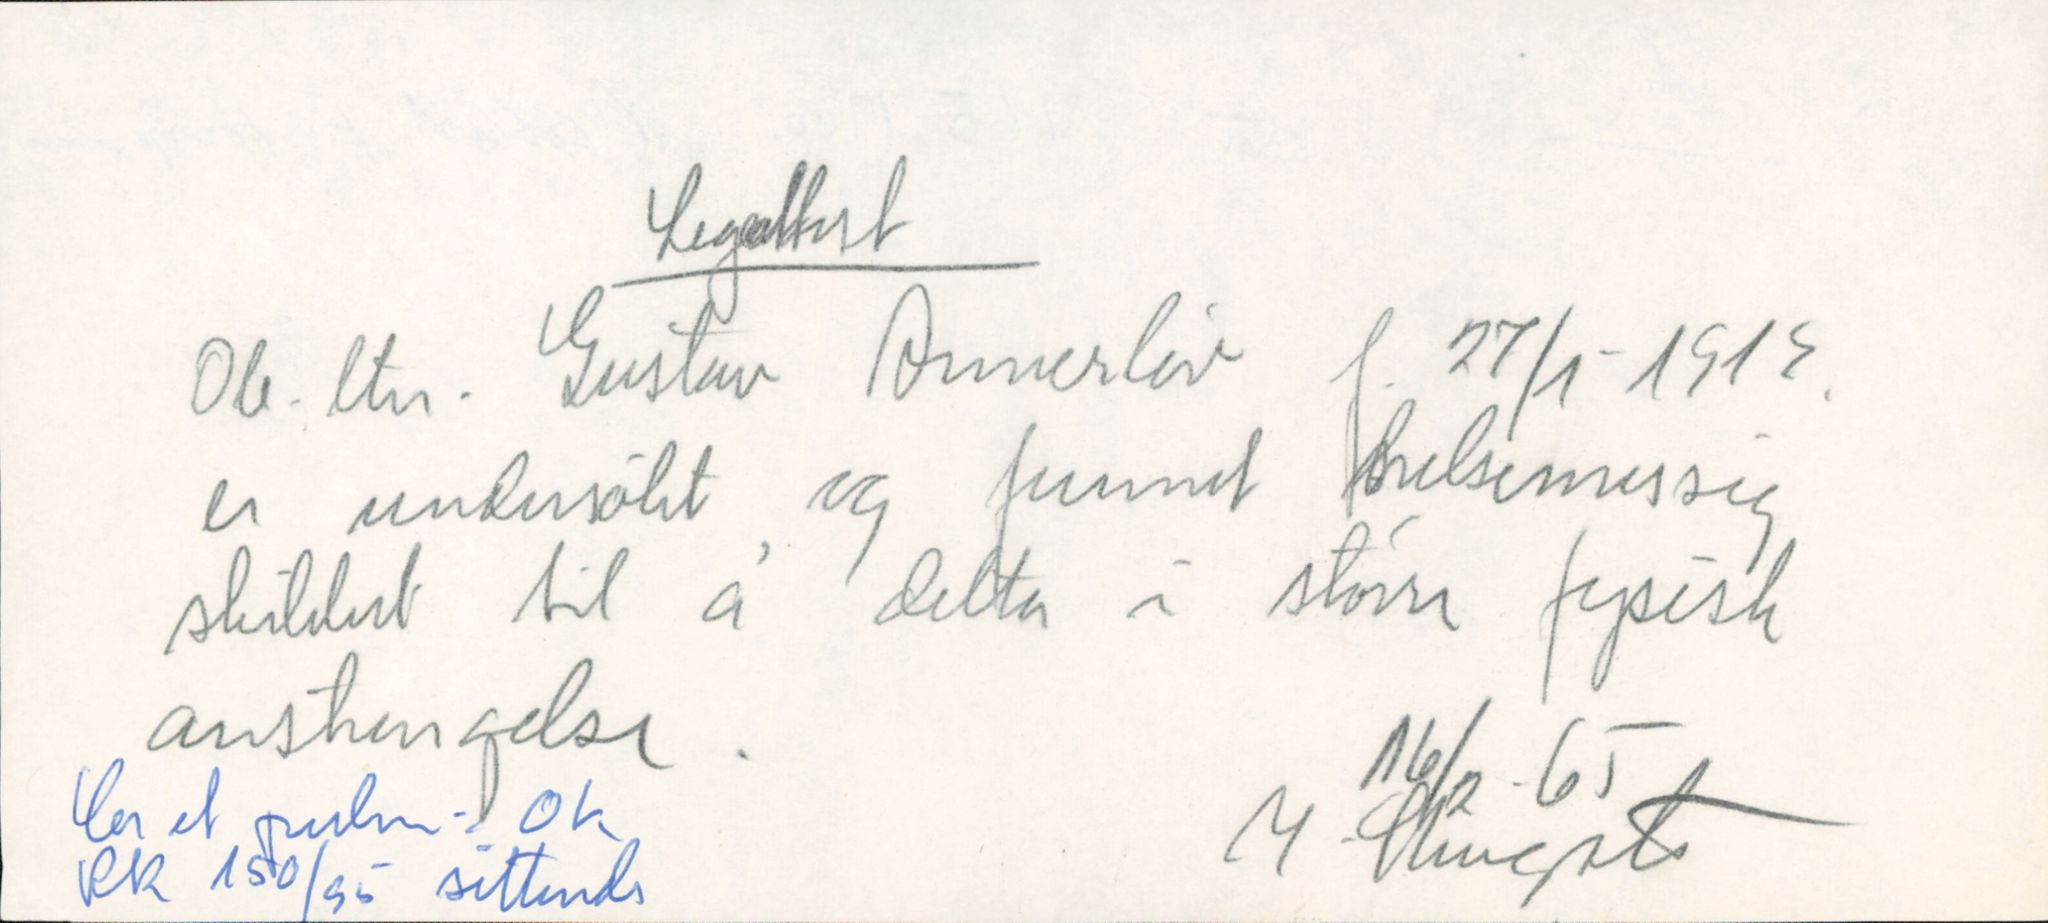 Legeattest
Ob. ltn. Gustav Annerlöv f. 27/1-1919.
er undersökt og funnet helsemessig
skikket til å delta i störri fysisk
anstrengelse.
16/2-65
Cor et pulm - OK
RR 150/95 sittende